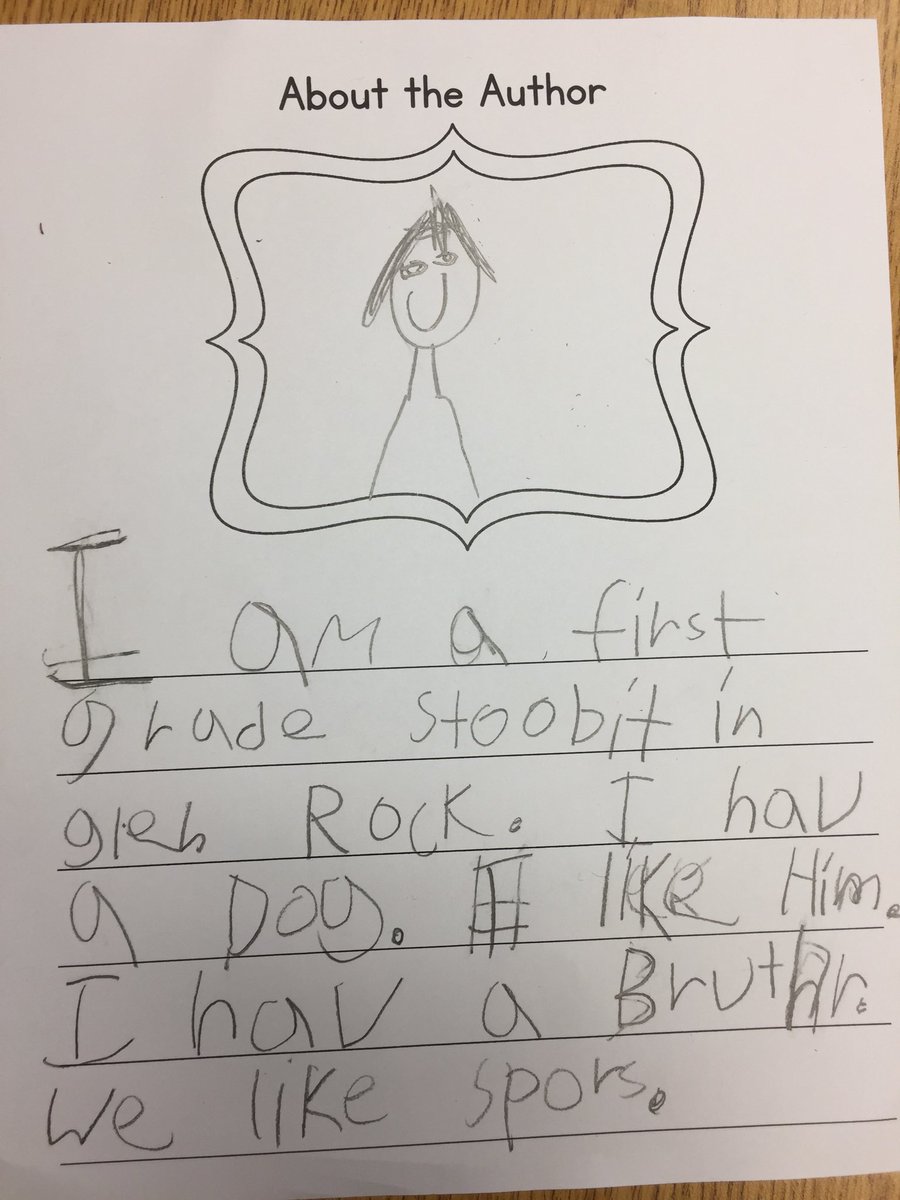 About the Author
I am a first
grade stoobit in
gleh Rock. I hav
a Dog. I like Him.
I hav a Bruthr.
We like spors.